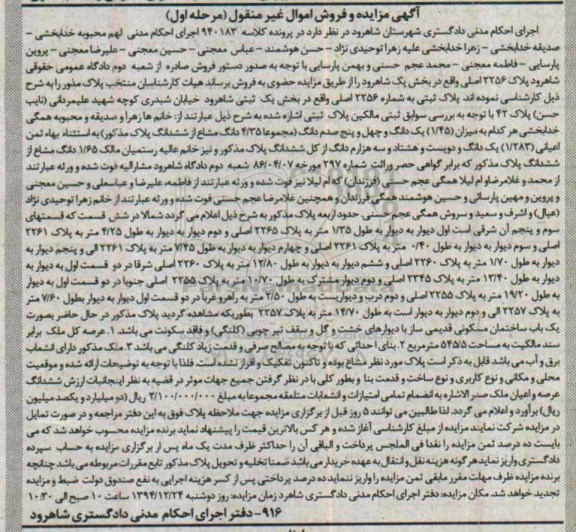 آگهی مزایده و فروش اموال غیر منقول (مرحله اول)
اجرای احکام مدنی دادگستری شهرستان شاهرود در نظر دارد در پرونده کلاسه ۹۴۰۱۸۳ اجرای احکام مدنی لهم محبوبه خدابخشی -
صدیقه خدابخشی - زهرا خدابخشی علیه زهرا توحیدی نژاد - حسن هوشمند - عباس معجنی - حسین معجنی - علیرضا معجنی - پروین
پارسایی - فاطمه معجنی - محمد عجم حسنی و بهمن پارسایی با توجه به صدور دستور فروش صادره از شعبه دوم دادگاه عمومی حقوقی
شاهرود پلاک ۲۲۵۶ اصلی واقع در بخش یک شاهرود را از طریق مزایده حضوری به فروش برساند هیات کارشناسان منتخب پلاک مذور را به شرح
ذیل کارشناسی نموده اند. پلاک ثبتی به شماره ۲۲۵۶ اصلی واقع در بخش یک ثبتی شاهرود خیابان شبدری کوچه شهید علیمردانی (نایب
حسن) پلاک ۴۲ با توجه به بررسی سوابق ثبتی مالکین پلاک ثبتی اشاره شده به شرح ذیل عبارتند از: خانم ها زهرا و صدیقه و محبوبه همگی
خدابخشی هر کدام به میزان (۱/۴۵) یک دانگ و چهل و پنج صدم دانگ (مجموعا ۴/۳۵ دانگ مشاع از ششدانگ پلاک مذکور) به استثناء بهاء ثمن
اعیانی (۱/۲۸۳) یک دانگ و دویست و هشتاد و سه هزارم دانگ از کل ششدانگ پلاک مذکور و نیز خانم عالیه رستمیان مالک ۱/۶۵ دانگ مشاع از
ششدانگ پلاک مذکور که برابر گواهی حصر وراثت شماره ۲۹۷ مورخه ۸۶/۰۴/۰۷ شعبه دوم دادگاه شاهرود مشارالیه فوت شده و ورثه عبارتند
از محمد و غلامرضا و ام لیلا همگی عجم حسنی (فرزندان) که ام لیلا نیز فوت شده و ورثه عبارتند از فاطمه علیرضا و عباسعلی و حسین معجنی
و پروین و مهین پارسائی و حسین هوشمند همگی فرزندان و همچنین غلامرضا عجم حسنی فوت شده و ورثه عبارتند از خانم زهرا توحیدی نژاد
(عیال) و اشرف و سعید و سروش همگی عجم حسنی. حدود اربعه پلاک مذکور به شرح ذیل اعلام می گردد شمالا در شش قسمت که قسمتهای
سوم و پنجم آن شرقی است اول دیوار به دیوار به طول ۱/۳۵ متر به پلاک ۲۲۶۵ اصلی و دوم دیوار به دیوار به طول ۴/۲۵ متر به پلاک ۲۲۶۱
اصلی و سوم دیوار به دیوار به طول ۰/۴۰ متر به پلاک ۲۲۶۱ اصلی و چهارم دیوار به دیوار به طول ۷/۴۵ متر به پلاک ۲۲۶۱ الی و پنجم دیوار به
دیوار به طول ۱/۷۰ متر به پلاک ۲۲۶۰ اصلی و ششم دیوار به دیوار به طول ۱۲/۸۰ متر به پلاک ۲۲۶۰ اصلی شرقا در دو قسمت اول به دیوار به
طول ۱۳/۴۰ متر به پلاک ۲۲۴۵ اصلی دوم دیواریست مشترک به طول ۱۰/۷۰ متر به پلاک ۲۲۵۵ اصلی جنوبا در دو قسمت اول به دیوار
به طول ۱۹/۲۰ متر به پلاک ۲۲۵۵ اصلی و دوم درب و دیواریست به طول ۲/۵۰ متر به راهرو غربا در دو قسمت اول دیوار به دیوار بطول ۷/۶۰ متر
به پلاک ۲۲۵۷ الی و دوم دیوار به دیوار است به طول ۱۴/۷۰ متر به پلاک ۲۲۵۷ بطوریکه مشاهده گردید پلاک مذکور در حال حاضر بصورت
یک باب ساختمان مسکونی قدیمی ساز با دیوارهای خشت و گل و سقف تیر چوبی (کلنگی) و فاقد سکونت می باشد. ۱. عرصه کل ملک برابر
سند مالکیت به مساحت ۵۴۵/۵ مترمربع ۲. بنای احداثی که با توجه به مصالح صرفی و قدمت زیاد کلنگی می باشد ۳. ملک مذکور دارای انشعاب
برق و آب می باشد قابل به ذکر است پلاک مورد نظر مشاع بوده و تاکنون تفکیک و افراز نشده است. فلذا با توجه به توضیحات ارائه شده و موقعیت
محلی و مکانی و نوع کاربری و نوع ساخت و قدمت بنا و بطور کلی با در نظر گرفتن جمیع جهات موثر در قضیه به نظر اینجانبان ارزش ششدانگ
عرصه و اعیان ملک صدر الاشاره به انضمام تمامی امتیازات و انشعابات متعلقه مجموعا به مبلغ ۲/۱۰۰/۰۰۰/۰۰۰ ریال (دو میلیارد و یکصد میلیون
ریال) برآورد و اعلام می گردد. لذا طالبین می توانند ۵ روز قبل از برگزاری مزایده جهت ملاحظه پلاک فوق به این دفتر مراجعه و در صورت تمایل
در مزایده شرکت نمایند مزایده از مبلغ کارشناسی آغاز شده و هر کس بالاترین قیمت را پیشنهاد نماید برنده مزایده محسوب خواهد شد که می
بایست ده درصد ثمن مزایده را نقدا فی المجلس پرداخت و الباقی آن را حداکثر ظرف مدت یک ماه پس از برگزاری مزایده به حساب سپرده
دادگستری واریز نماید هر گونه هزینه نقل و انتقال به عهده خریدار می باشد ضمنا تخلیه و تحویل پلاک مذکور تابع مقررات مربوطه می باشد چنانچه
برنده مزایده ظرف مهلت مقرر مابقی ثمن مزایده را واریز ننماید ده درصد پرداختی پس از کسر هزینه اجرایی به نفع صندوق دولت ضبط و مزایده
تجدید خواهد شد. مکان مزایده: دفتر اجرای احکام مدنی دادگستری شاهرود زمان مزایده: روز دوشنبه ۱۳۹۴/۱۲/۲۴ ساعت ۱۰ صبح الی ۱۰:۳۰
۹۱۶- دفتر اجرای احکام مدنی دادگستری شاهرود